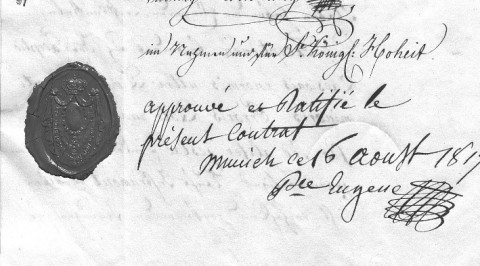 im Nahmen und für Sr Königl: Hoheit.
approuvé et Ratifié le
présent Contrat
Munich ce 16 aoust 1817
Pce Eugene